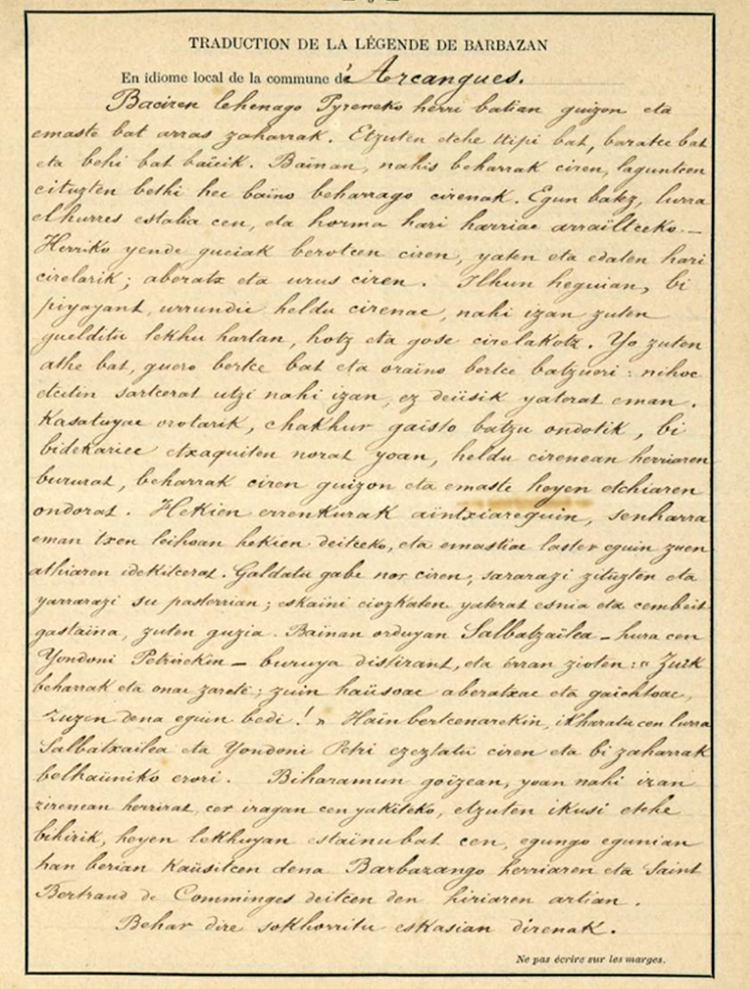 TRADUCTION DE LA LÉGENDE DE BARBAZAN
En idiome local de la commune d'Arcangues.
Baciren lehenago Pyreneko herri batian guizon eta
emaste bat arras zaharrak. Etzuten etche ttipi bat, baratce bat
eta behi bat baïcik. Baïnan, nahis beharrak ciren, laguntcen
cituzten bethi hec baïno beharrago cirenak. Egun batez, lurra
elhurres estalia cen, eta horma hari harriac arraïltceko. —
Herriko yende guciak berotcen ciren, yaten eta edaten hari
cirelarik; aberatx eta urus ciren. Ilhun heguian, bi
piyayant, urrundic heldu cirenac, nahi izan zuten
gueldittu lekhu hartan, hotz eta gose cirelakotz. Yo zuten
athe bat, guero bertce bat eta oraïno bertce batzueri: nihoc
etcitin sartcerat utzi nahi izan, ez deüsik yaterat eman.
Kasatuyac orotarik, chakhur gaisto batzu ondotik, bi
bidekariec etxaquiten norat yoan, heldu cirenean herriaren
bururat, beharrak ciren guizon eta emaste hoyen etchiaren
ondorat. Hekien errenkurak aïntxiareguin, senharra
eman txen leihoan hekien deitceko, eta emastiac laster eguin zuen
athiaren idekitcerat. Galdatu gabe nor ciren, sararazi zituzten eta
yarrarazi su pasterrian; eskaïni ciozkaten yaterat esnia eta cembeit
gastaïna, zuten guzia. Baïnan orduyan Salbatzaïlea – hura cen
Yondoni Petrirekïn – buruya distirant, eta érran zioten: « Zuik
beharrak eta onac zarete; zuin haüsoac aberatxac eta gaichtoac,
zuzen dena eguin bedi! » Haïn bertcenarekin, ikharatu cen lurra
Salbatxaïlea eta Yondoni Petri ezeztatü ciren eta bi zaharrak
belhaüniko erori. Biharamun goïzean, yoan nahi izan
zirenean herrirat, cer iragan cen yakiteko, etzuten ikusi etche
bihirik, heyen lekhuyan estaïnu bat cen, egungo egunian
han berian kaüsitcen dena Barbazango herriaren eta Saint
Bertrand de Comminges deitcen den hiriaren artian.
Behar dire sokhorritu eskasian direnak.
Ne pas écrire sur les marges.